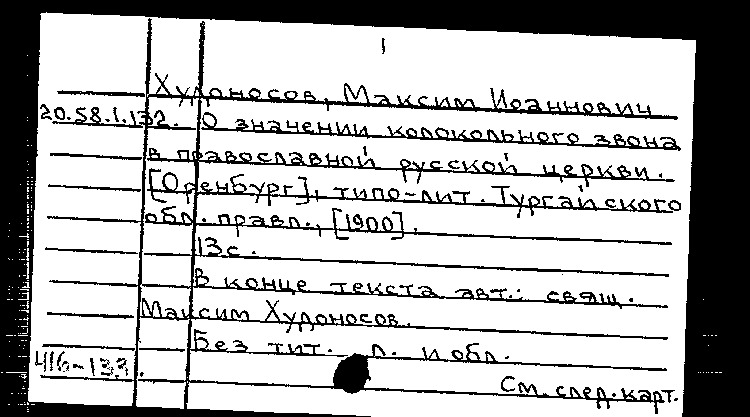 1
Худоносов, Максим Иоаннович
20.58.1.132. О значении колокольного звона
в православной русской церкви.
[Оренбург], типо-лит. Тургайского
обл. правл., [1900].
13с.
В конце текста авт.: свящ.
Максим Худоносов.
Без тит. л. и обл.
416-133.
См. след. карт.